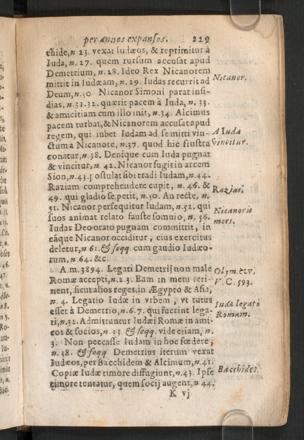 per annos expansos. 229
chide, n 23. vexat Iudæos, & reprimitur à
Iuda, n. 27. quem rursum accusat apud
Demetrium, n. 28. Ideo Rex Nicanorem
mittit in Iudæam, n. 29. Iudas recurrit ad
Deum, n. 30 Nicanor Simoni parat insi-
dias, n. 31. 32. quærit pacem à Iuda, n. 33.
& amicitiam cum illo init, n. 34. Alcimus
pacem turbat, & Nicanorem accusat apud
regem, qui iubet Iudam ad se mitti vin-
ctum à Nicanore, n. 37. quod hic frustra
conatur, n. 38. Denique cum Iuda pugnat
& vincitur, n 42. Nicanor fugit in arcem
Sion, n. 43. postulat sibi tradi Iudam, n. 44.
Raziam comprehendere cupit, n. 46. &
49. qui gladio se petit, n. 50. An recte, n.
51. Nicanor persequitur Iudam, n. 52. qui
suos animat relato fausto somnio, n. 56.
Iudas Deo orato pugnam committit, in
eâque Nicanor occiditur, eius exercitus
deletur, n 61. & seqq. cum gaudio Iudæo-
rum, n 64. &c.
A.m. 3894. Legati Demetrij non male
Romæ accepti, n. 2. Eam in metu reti-
nent, sublatis reges in Ægypto & Asia,
n. 4. Legatio Iudæ in vrbem, vt tutus
esset à Demetrio, n. 6. 7. qui fuerint lega-
ti, n. 52. Admittuntur Iudæi Romæ in ami-
cos & socios, n. 15 & seqq. vide etiam, n.
3. Non peccasse Iudam in hoc fœdere,
n. 18. & seqq Demetrius iterum vexat
Iudæos, per Bacchidem & Alcimum, n. 41.
Copiæ Iudæ timore diffugiunt, n. 43. Ipse
timore tentatur, quem socij augent, n 44.
K vj
Nicanor.
A Iuda
vincitur.
Razias.
Nicanoris
mors.
V. C. 593.
Iudæ legati
Romam.
Bacchides.